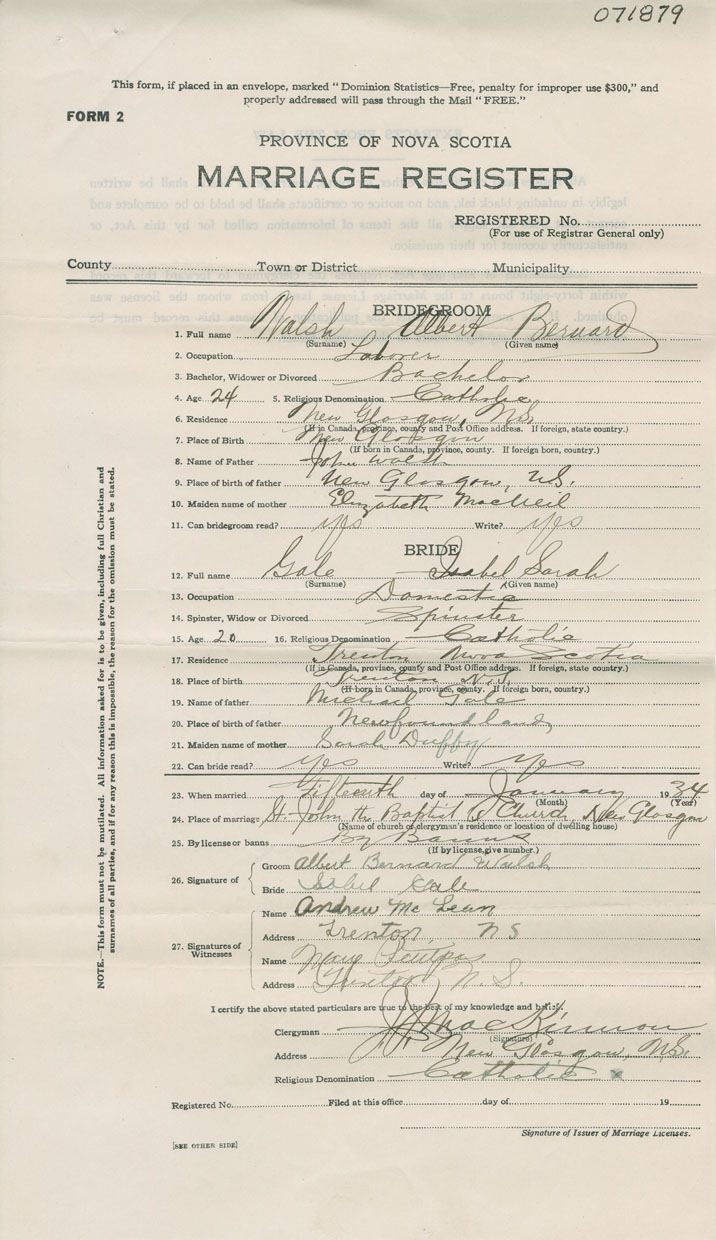 071879
This form, if placed in an envelope, marked "Dominion Statistics—Free, penalty for improper use $300," and
properly addressed will pass through the Mail "FREE."
FORM 2
PROVINCE OF NOVA SCOTIA
MARRIAGE REGISTER
REGISTERED No.
(For use of Registrar General only)
County Town or District Municipality
BRIDEGROOM
1. Full name Walsh Albert Bernard
(Surname) (Given name)
2. Occupation Laborer
3. Bachelor, Widower or Divorced Bachelor
4. Age 24 5. Religious Denomination Catholic
6. Residence New Glasgow, N.S.
(If in Canada, province, county and Post Office address. If foreign, state country.)
7. Place of Birth New Glasgow
(If born in Canada, province, county. If foreign born, country.)
8. Name of Father John Walsh
9. Place of birth of father New Glasgow, N.S.
10. Maiden name of mother Elizabeth MacNeil
11. Can bridegroom read? yes Write? yes
BRIDE
12. Full name Gale Isabel Sarah
(Surname) (Given name)
13. Occupation Domestic
14. Spinster, Widow or Divorced Spinster
15. Age 20 16. Religious Denomination Catholic
17. Residence Trenton Nova Scotia
(If in Canada, province, county and Post Office address. If foreign, state country.)
18. Place of birth Trenton N.S.
(If born in Canada, province, county. If foreign born, country.)
19. Name of father Michael Gale
20. Place of birth of father Newfoundland
21. Maiden name of mother Sarah Duffy
22. Can bride read? yes Write? yes
23. When married Fifteenth day of January 1934
(Month) (Year)
24. Place of marriage St. John the Baptist Church, New Glasgow
(Name of church or clergyman's residence or location of dwelling house)
25. By license or banns By Banns
(If by license, give number.)
26. Signature of
Groom Albert Bernard Walsh
Bride Isabel Gale
27. Signatures of Witnesses
Name Andrew Mc Lean
Address Trenton, N S
Name Mary
Address Trenton N.S.
I certify the above stated particulars are true to the best of my knowledge and belief.
Clergyman MacKinnon
(Signature)
Address New Glasgow, N.S.
Religious Denomination Catholic
Registered No. Filed at this office day of 19
Signature of Issuer of Marriage Licenses.
[SEE OTHER SIDE]
NOTE.—This form must not be mutilated. All information asked for is to be given, including full Christian and
surnames of all parties, and if for any reason this is impossible, the reason for the omission must be stated.